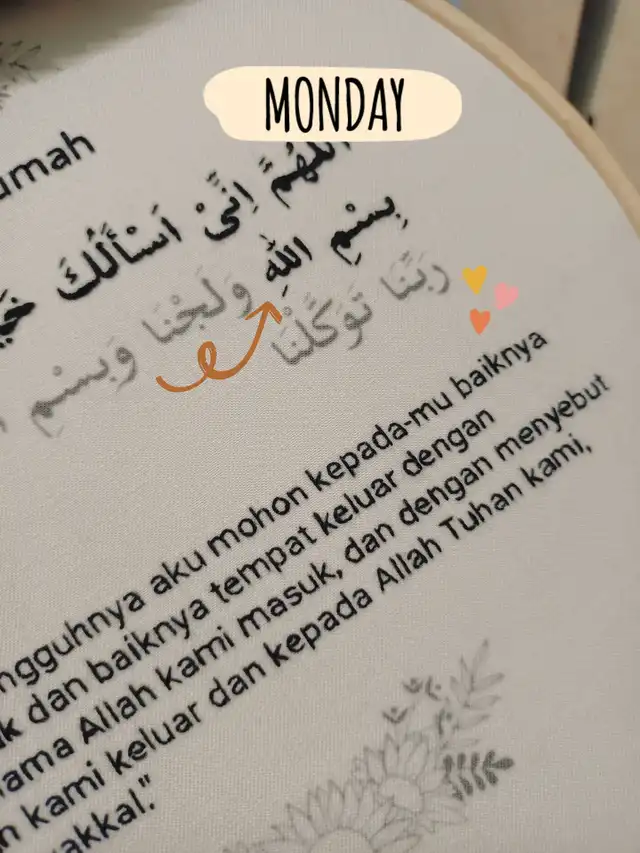 MONDAY
umah
اللهُمَّ اِنِّىْ اَسْأَلُكَ
بِسْمِ اللهِ وَلَجْنَا وَبِسْمِ
رَبَّنَا تَوَكَّلْنَا
ngguhnya aku mohon kepada-mu baiknya
k dan baiknya tempat keluar dengan
ama Allah kami masuk, dan dengan menyebut
n kami keluar dan kepada Allah Tuhan kami,
akkal."